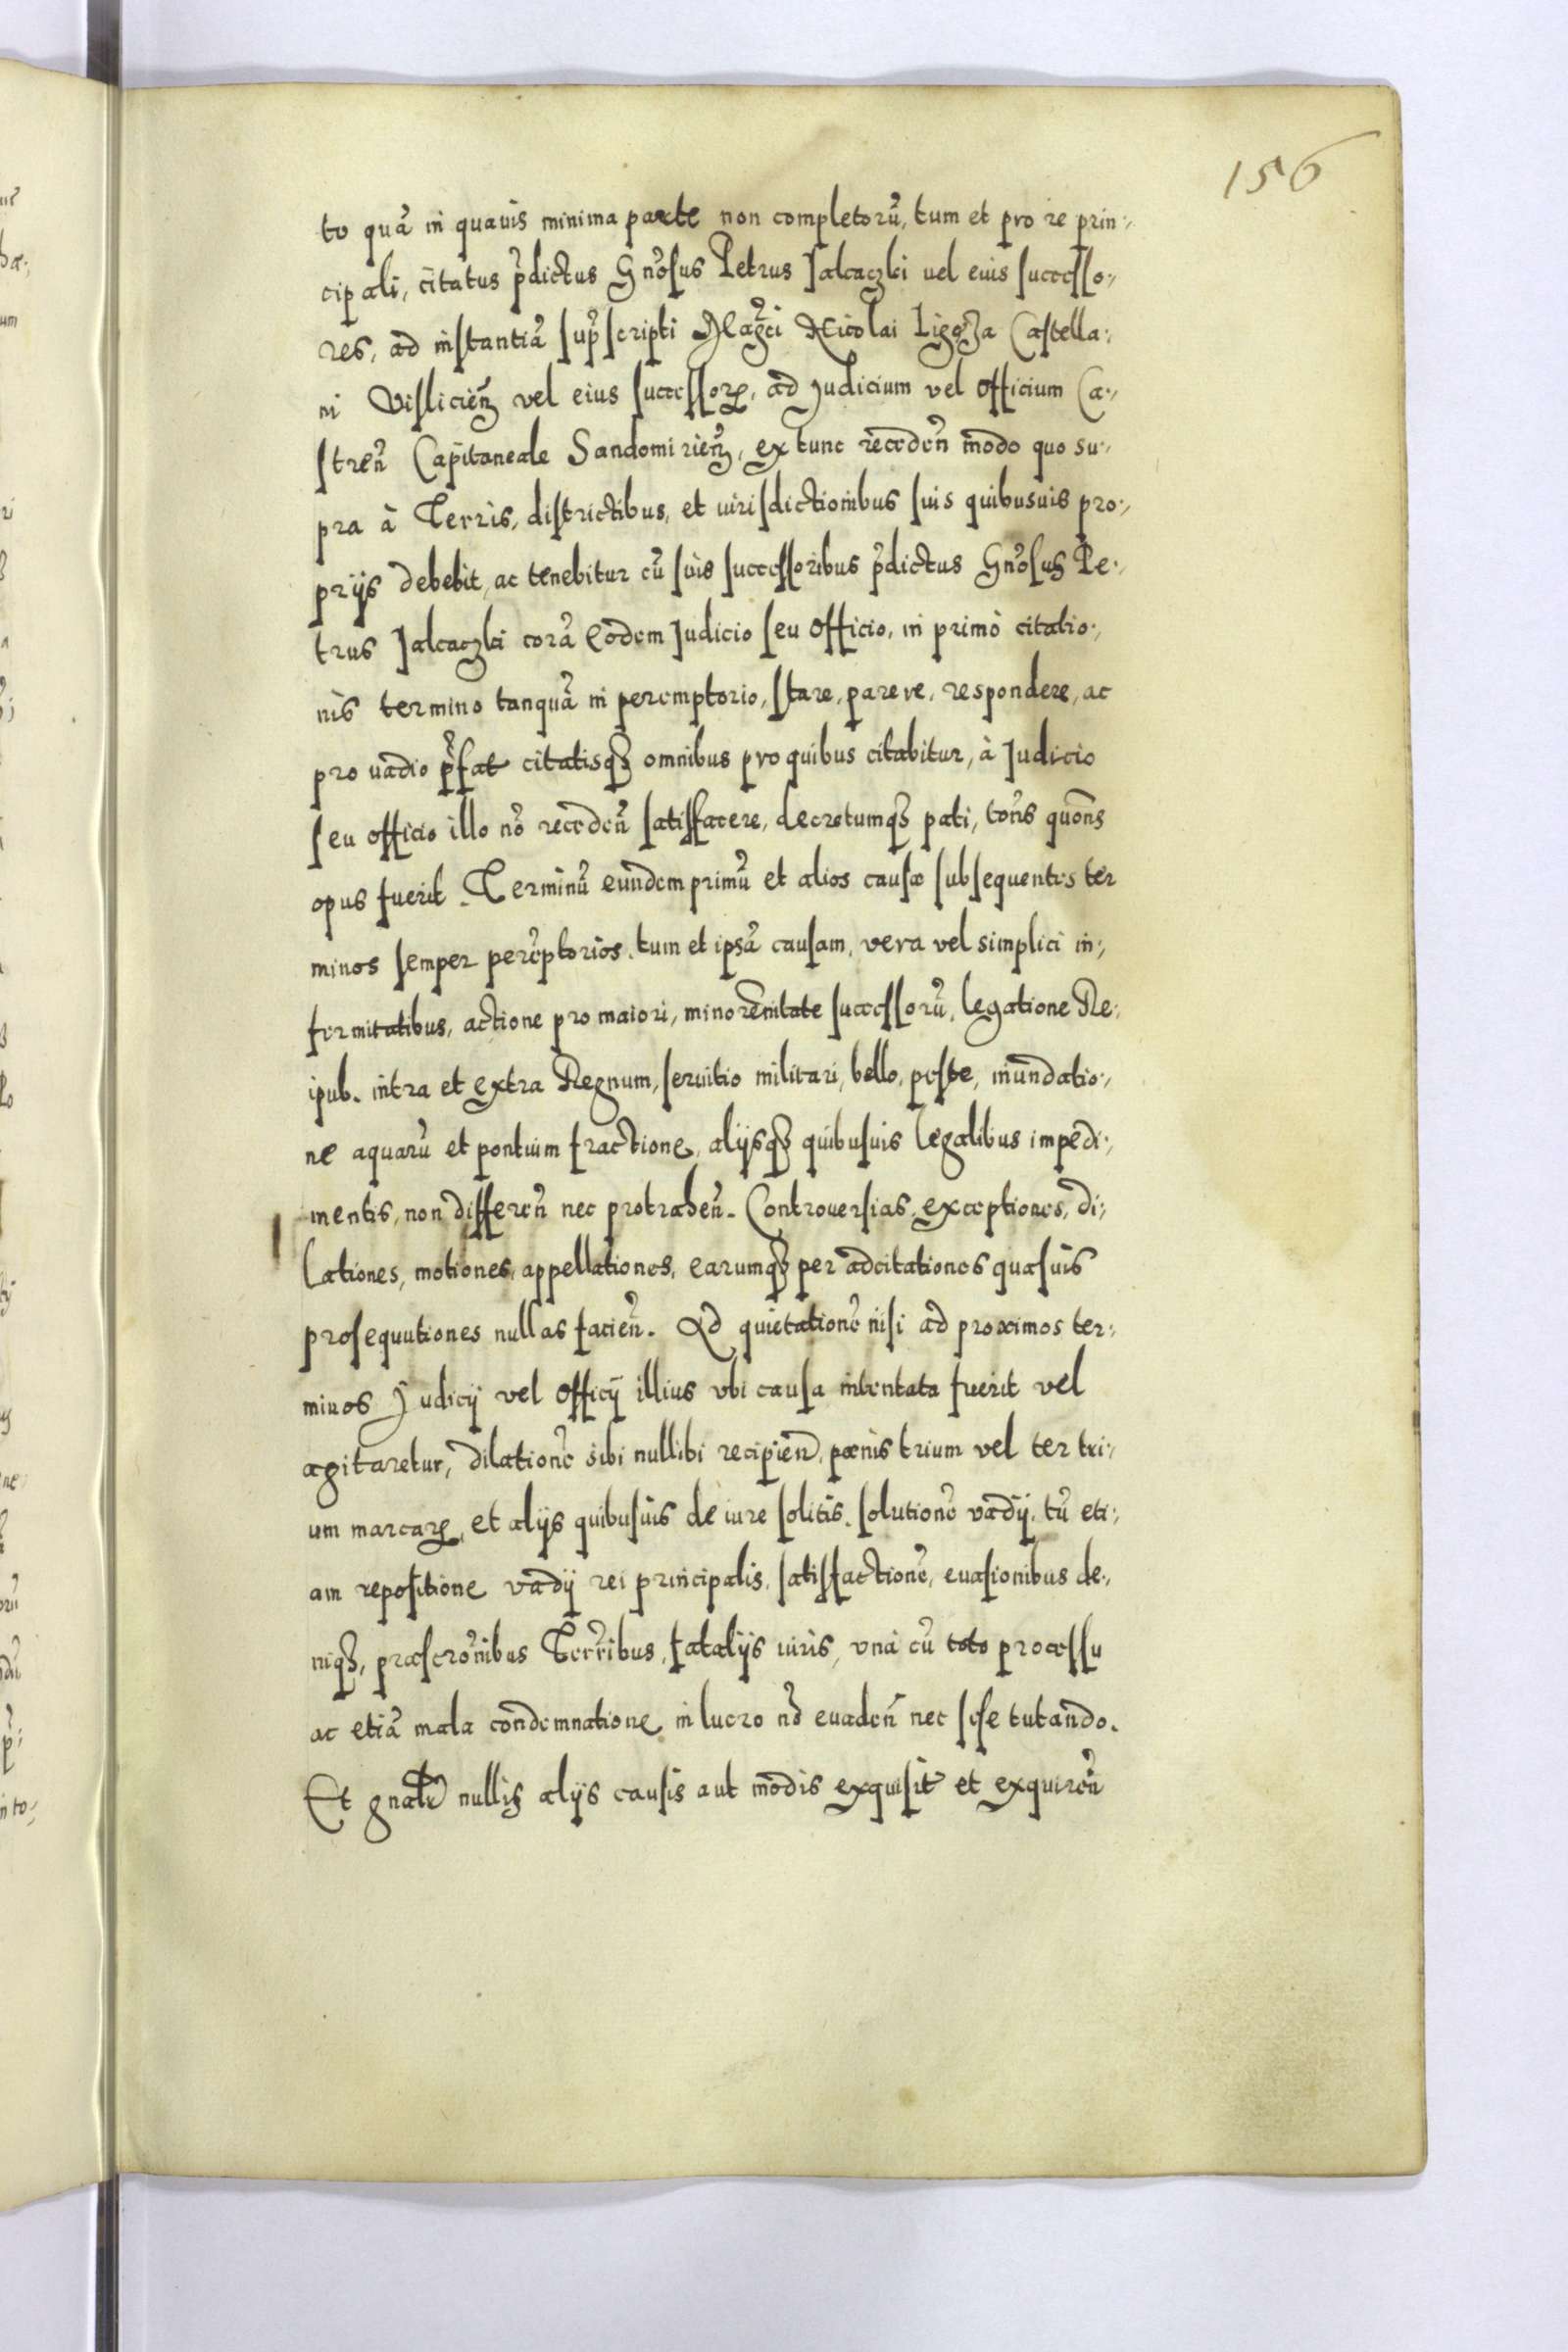 156
to quã in quauis minima parte non completorũ, tum et pro re prin-,
cipali, citatus p̃dictus Gñosus Petrus Jalcaczki uel eius successo-,
res, ad instantiã sup̃scripti Magc̃i Nicolai Ligęza Castella-,
ni Visliciẽn vel eius successoꝝ, ad Judicium vel Officium Ca-,
streñ Capitaneale Sandomiriẽn, ex tunc receden̄ modo quo su-,
pra à Terris, districtibus, et iurisdictionibus suis quibusuis pro-,
prijs debebit, ac tenebitur cũ suis successoribus p̃dictus Gñosus Pe-,
trus Jalcaczki corã Eodem Judicio seu Officio, in primo citatio-,
nis termino tanquã in peremptorio, stare, parere, respondere, ac
pro uadio p̃fat citatisqꝫ omnibus pro quibus citabitur, à Judicio
seu officio illo nõ receden̄ satisfacere, decretumqꝫ pati, toñs quoñs
opus fuerit. Terminũ eundem primũ et alios causæ subsequentes ter
minos semper perẽptorios, tum et ipsã causam, vera vel simplici in-,
firmitatibus, actione pro maiori, minorennitate successorũ, legatione Re-,
ipub. intra et extra Regnum, seruitio militari, bello, peste, inundatio-,
ne aquarũ et pontium fractione, alijsqꝫ quibusuis legalibus impedi-,
mentis, non differen̄ nec protrahen̄. Controuersias, exceptiones, di-,
lationes, motiones, appellationes, earumqꝫ per adcitationes quasuis
prosequutiones nullas facien̄. Ad quietationẽ nisi ad proximos ter-,
minos Judicij vel Officij illius vbi causa intentata fuerit vel
agitaretur, dilationẽ sibi nullibi recipien̄, pœnis trium vel ter tri-,
um marcaꝝ, et alijs quibusuis de iure solitis, solutionẽ vadij, tũ eti-,
am repositione vadij rei principalis, satisfactionẽ, euasionibus de-,
niqꝫ, præscrõnibus Terr̃ibus, fatalijs iuris, vnà cũ toto processu
ac etiã mala condemnatione in lucro nõ euaden̄ nec sese tutando.
Et gnalr̃ nullis alijs causis aut modis exquisit et exquiren̄